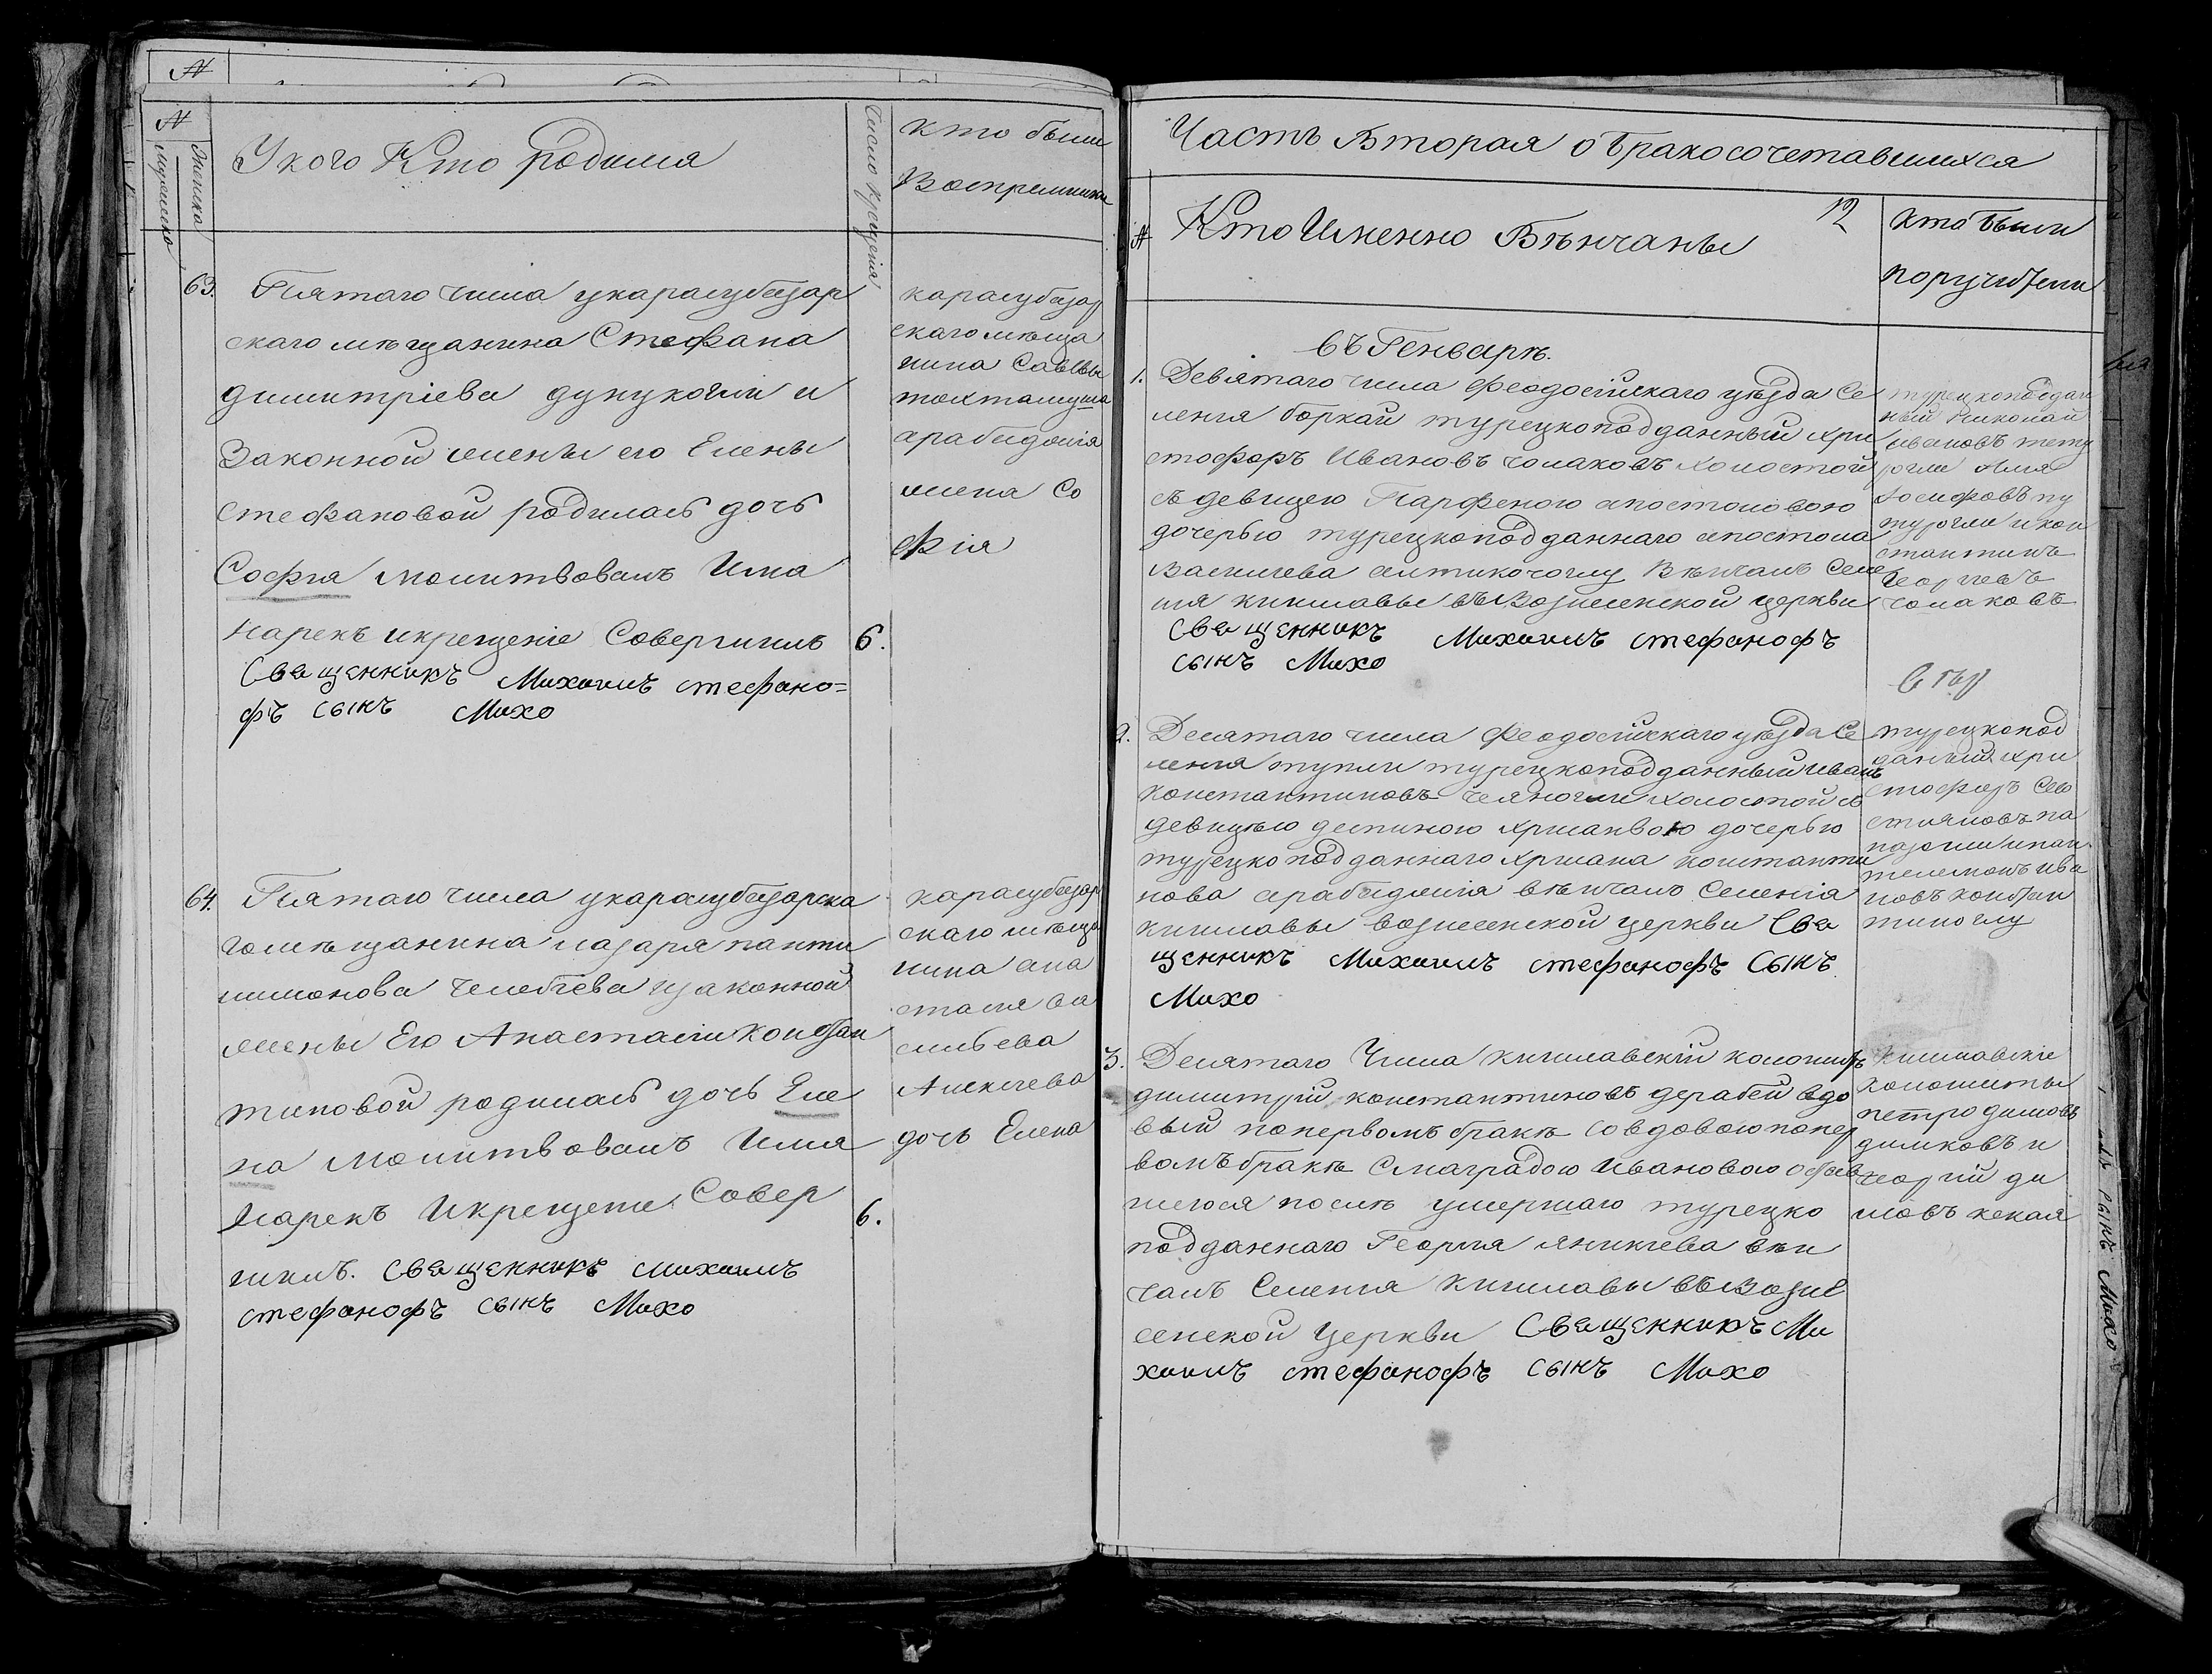 №
№
мужеска
женска
Укого Кто родился
Число крещения
кто были
Восприемники
63.
Пятаго числа укарасубазар
скаго мѣщанина Стефана
димитріева дукукогли и
Законной жены его Елены
стефановой родилась дочь
София молитвовалъ Имя
нарекъ икрещеніе Совершилъ
6.
Священникъ Михаилъ стефано=
фъ сынъ Михо
карасубазар
скаго мѣща
нина Саввы
тохтамуша
арабаджія
жена Со
фія
64.
Пятаго числа укарасубазарска
го мѣщанина лазаря панти
лимонова челебіева изаконной
жены Его Анастасіи констан
тиновой родилась дочь Еле
на молитвовалъ Имя
Нарекъ Икрещение Совер
6.
шилъ. Священникъ михаилъ
стефанофъ сынъ Михо
карасубазар
скаго мѣща
нина ана
стасия ва
сильева
Алексіева
дочь Елена
Часть Вторая о Бракосочетавшихся
№
Кто Именно Вѣнчаны
12
кто были
поручители
въ Генварѣ.
1.
Девятаго числа феодосійскаго уѣзда Се
ления боркай турецкоподданный хри
стофоръ Ивановъ чолаковъ холостой
съ девицею Парфеною апостоловою
дочерью турецкоподданнаго апостола
Василиева алтикочоглу Вѣнчалъ Селе
ния кишлавы въ Вознесенской церкви
Священникъ Михаилъ стефанофъ
сынъ Михо
турецкоподдан
ный Николай
ивановъ
Илия
Иосифовъ
и кон
стантинъ
Георгіевъ
чолаковъ
2.
Десятаго числа феодосійскаго уѣзда Се
ления тупли турецкоподданный иванъ
константиновъ чеяногли холостой съ
девицею деспиною хрисанвою дочерью
турецко подданнаго хрисана константи
нова арабаджія вѣнчалъ Селенія
кишлавы вознесенской церкви Свя
щенникъ Михаилъ стефанофъ Сынъ
Михо
турецкопод
даный хри
стофоръ Сево
стияновъ па
и пан
телемонъ ива
новъ констан
тиноглу
3.
Десятаго Числа кишлавскій колонистъ
димитрій константиновъ дерабей вдо
вый попервомъ бракѣ со вдовою попер
вомъ бракѣ Смаградою Ивановою остав
шегося послѣ умершаго турецко
подданнаго Георгія яникиева вѣн
чалъ Селения Кишлавы въ Вознe
сенской Церкви Священникъ Ми
хаилъ стефанофъ сынъ Михо
Кишлавскіе
колонисты
петро димовъ
димковъ и
георгій ди
мовъ кекая
сынъ Михо